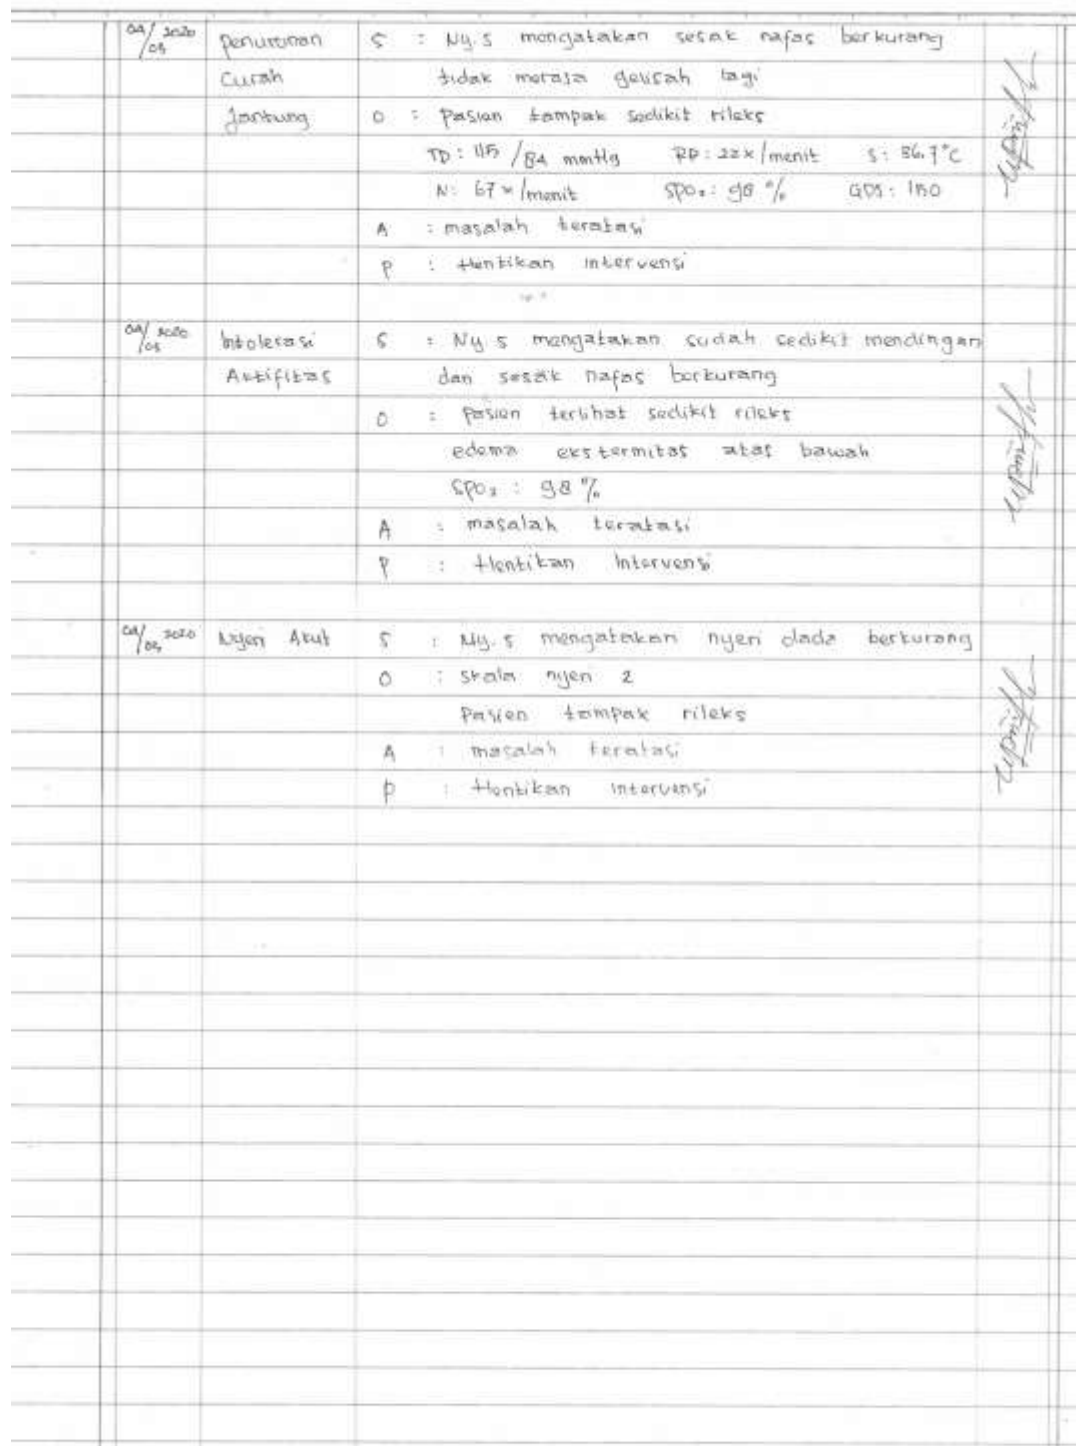 04/03 2020 Penurunan S : Ny. S mengatakan sesak nafas berkurang
Curah tidak merasa gelisah lagi
Jantung O : Pasien tampak sedikit rileks
TD : 115 / 84 mmHg RR : 22 x / menit S : 36,7°C
N : 67 x / menit SPO2 : 98 % GDS : 150
A : masalah teratasi
P : Hentikan intervensi
04/03 2020 Intolerasi S : Ny S mengatakan sudah sedikit mendingan
Aktifitas dan sesak nafas berkurang
O : Pasien terlihat sedikit rileks
edema ekstermitas atas bawah
SPO2 : 98 %
A : masalah teratasi
P : Hentikan Intervensi
04/03 2020 Nyeri Akut S : Ny. S mengatakan nyeri dada berkurang
O : skala nyeri 2
Pasien tampak rileks
A : masalah teratasi
P : Hentikan intervensi